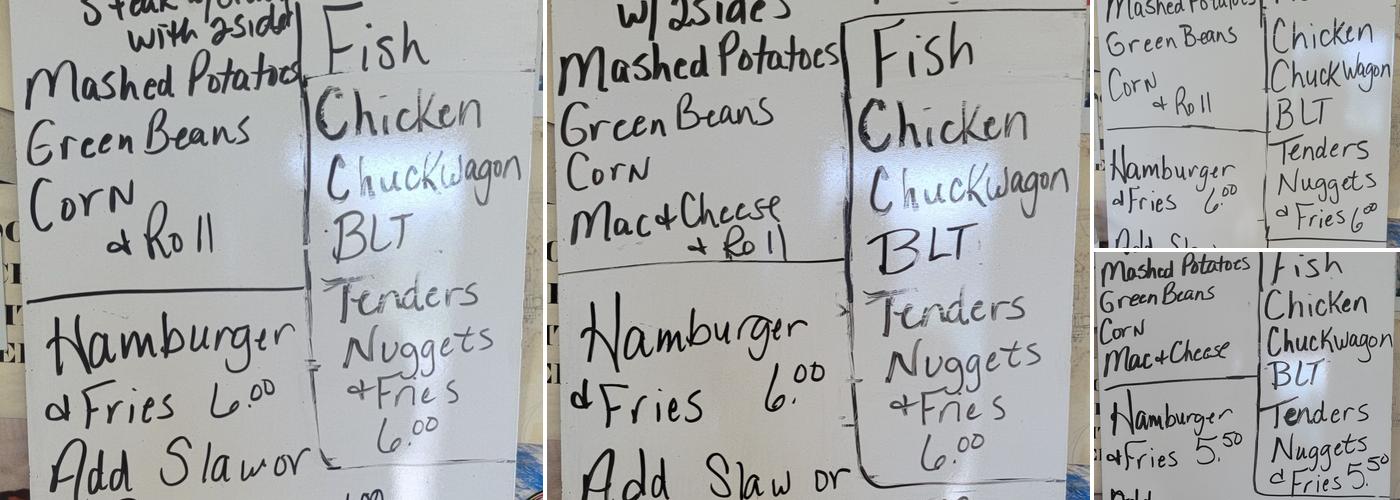 with 2sides
Mashed Potatoes
Green Beans
Corn
& Roll
Hamburger
& Fries 6.00
Add Slaw or
Fish
Chicken
Chuckwagon
BLT
Tenders
Nuggets
& Fries
6.00
w/ 2sides
Mashed Potatoes
Green Beans
Corn
Mac & Cheese
& Roll
Hamburger
& Fries 6.00
Add Slaw or
Fish
Chicken
Chuckwagon
BLT
Tenders
Nuggets
& Fries
6.00
Mashed Potatoes
Green Beans
Corn
& Roll
Hamburger
& Fries 6.00
Add Slaw
Chicken
Chuckwagon
BLT
Tenders
Nuggets
& Fries 6.00
Mashed Potatoes
Green Beans
Corn
Mac & Cheese
Hamburger
& Fries 5.50
Fish
Chicken
Chuckwagon
BLT
Tenders
Nuggets
& Fries 5.50